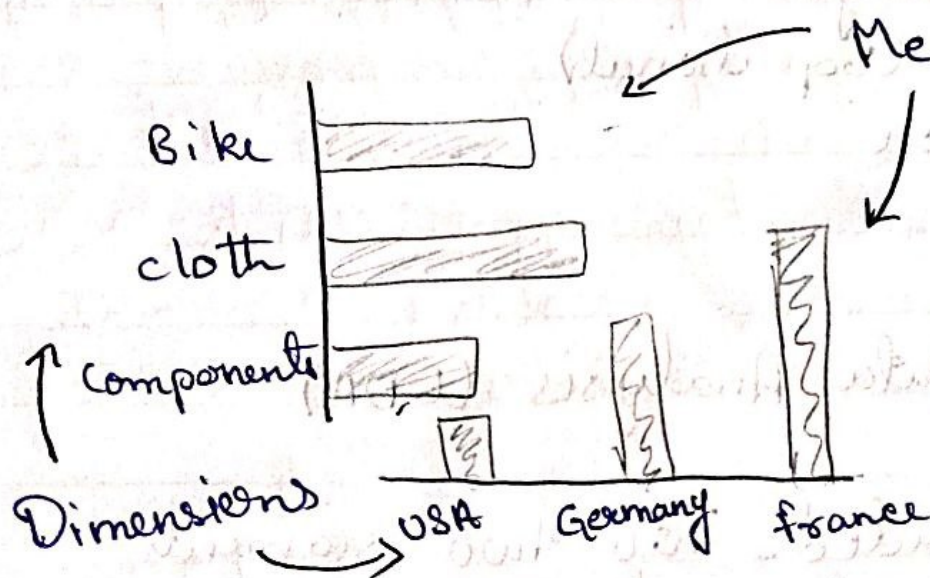 Me
Bike
cloth
components
Dimensions
USA Germany france